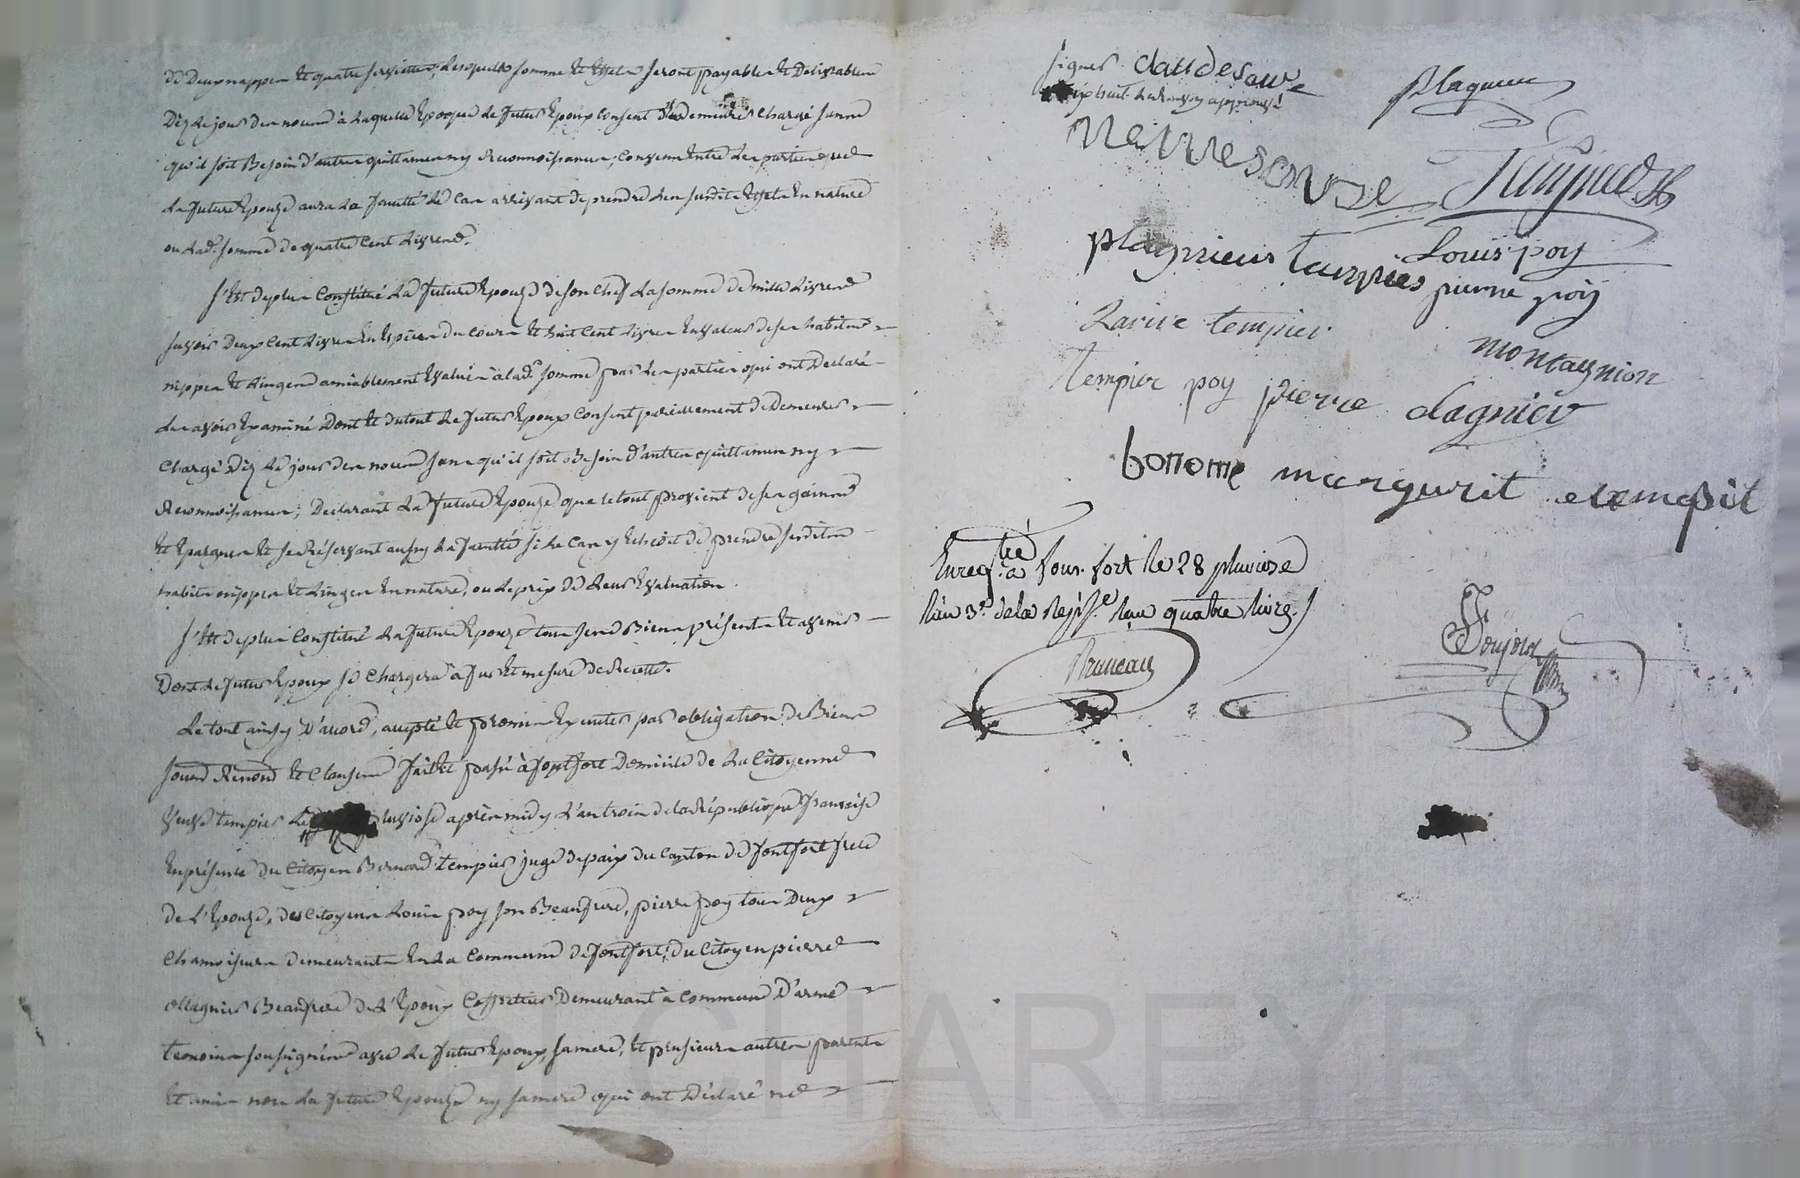 de deux nappes et quatre serviettes, lesquels somme et effets seront payables et délivrables
Dèz le jour des noces à laquelle Epoque le futur Epoux consent d'en demeurer chargé sans
qu'il soit Besoin d'autres quittances ny Reconnoissances; convenu entre les parties que
La future Epouze aura la faculté le cas arrivant de prendre les susdits Effets En nature
ou lad. somme de quatre cent Livres.
S'Est de plus Constitué La future Epouze de son chef La somme de mille Livres
savoir Deux Cent Livres En Espèces du cours et huit cent Livres En valeur de ses habits
nippes et Linges amiablement Evalués à lad. somme par les parties qui ont Déclaré
les avoir Examiné Dont et du tout Le futur Epoux consent pareillement de Demeurer
chargé Dèz Le jour des noces sans qu'il soit Besoin d'autres quittances ny
Reconnoissances; Déclarant La future Epouze que le tout provient de ses gaines
et Epargnes et se Réservant aussy La faculté si le cas y Echoit de prendre sesdits
habits nippes et Linges En nature, ou le prix de Leur Evaluation.
S'Est de plus Constitué La future Epouze tous ses Biens présents et avenir
Dont le futur Epoux se chargera à fur et mesure de Recette.
Le tout ainsy D'accord, accepté et promis Exécuter par obligation de Biens
soumis Renons et Clauses fait et passé à fontfort Domicile de La Citoyenne
veuve tempier Le pluviose après midy L'an trois de la République française
En présence du Citoyen Bernard tempier juge de paix du Canton de fontfort frere
de L'Epouze, des Citoyens Louis poy son Beaufrere, pierre poy tous Deux
Chamoiseurs demeurants En La Commune de fontfort; du Citoyen pierre
ollagnier Beaufrere de L'Epoux Coffretier Demeurant à Commune D'armes
temoins soussignés avec Le futur Epoux, sa mere, et plusieurs autres parents
et amis non La future Epouze ny sa mere qui ont Déclaré ne
signer
claude sauze
plagneux
plagnieux tempier
Louis poy
pierre poy
Larive tempier
montagnion
Tempier poy pierre olagnier
bonome margurit
Enregtré à fonfort le 28 pluviose
l'an 3e de la Repue. Reçu quatre livres
Bruneau